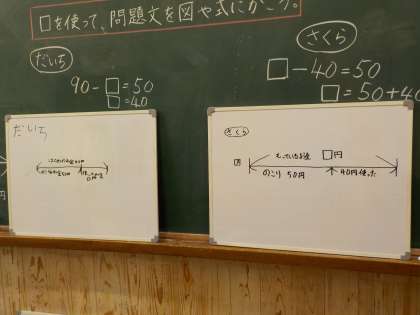 □を使って、問題文を図や式にかこう。
だいち
90-□=50
□=40
さくら
□-40=50
□=50+40
だいち
さくら
図
もっているお金 □円
のこり 50円
40円使った